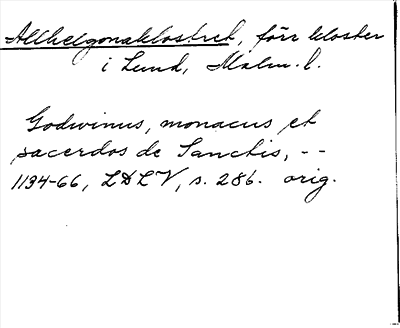 Allhelgonaklostret, förr kloster
i Lund, Malm. l.
Godwinus, monacus et
sacerdos de Sanctis, --
1134-66, LDLV, s. 286. orig.